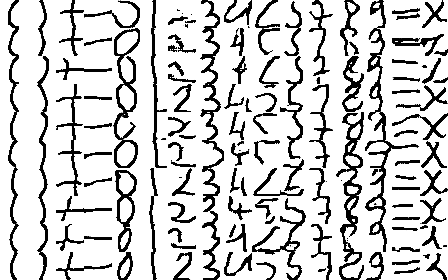 ( ) + - 0 1 2 3 4 5 3 7 8 9 = x
( ) + - 0 1 2 3 4 5 3 7 8 9 = x
( ) + - 0 1 2 3 4 5 3 7 8 9 = x
( ) + - 0 1 2 3 4 5 3 7 8 9 = x
( ) + - 0 1 2 3 4 5 3 7 8 9 = x
( ) + - 0 1 2 3 4 5 3 7 8 9 = x
( ) + - 0 1 2 3 4 5 3 7 8 9 = x
( ) + - 0 1 2 3 4 5 3 7 8 9 = x
( ) + - 0 1 2 3 4 5 3 7 8 9 = x
( ) + - 0 1 2 3 4 5 3 7 8 9 = x